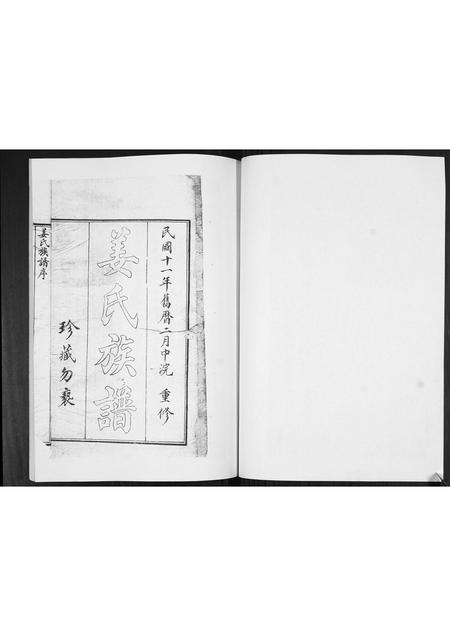 民國十一年舊曆二月中浣 重修
姜氏族譜
珍藏勿褻
姜氏族譜序